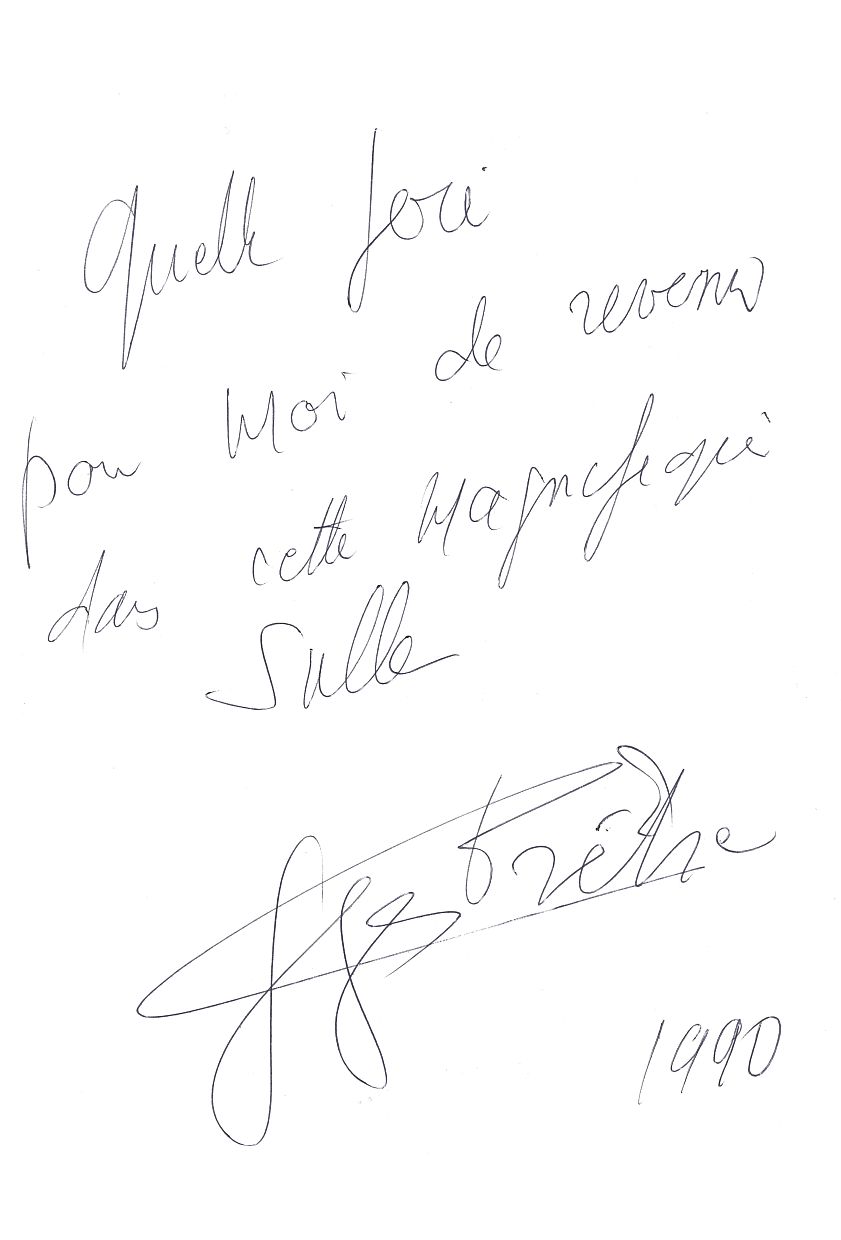 Quelle joie
pour moi de revenir
dans cette magnifique
salle
Ges Prêtre
1990